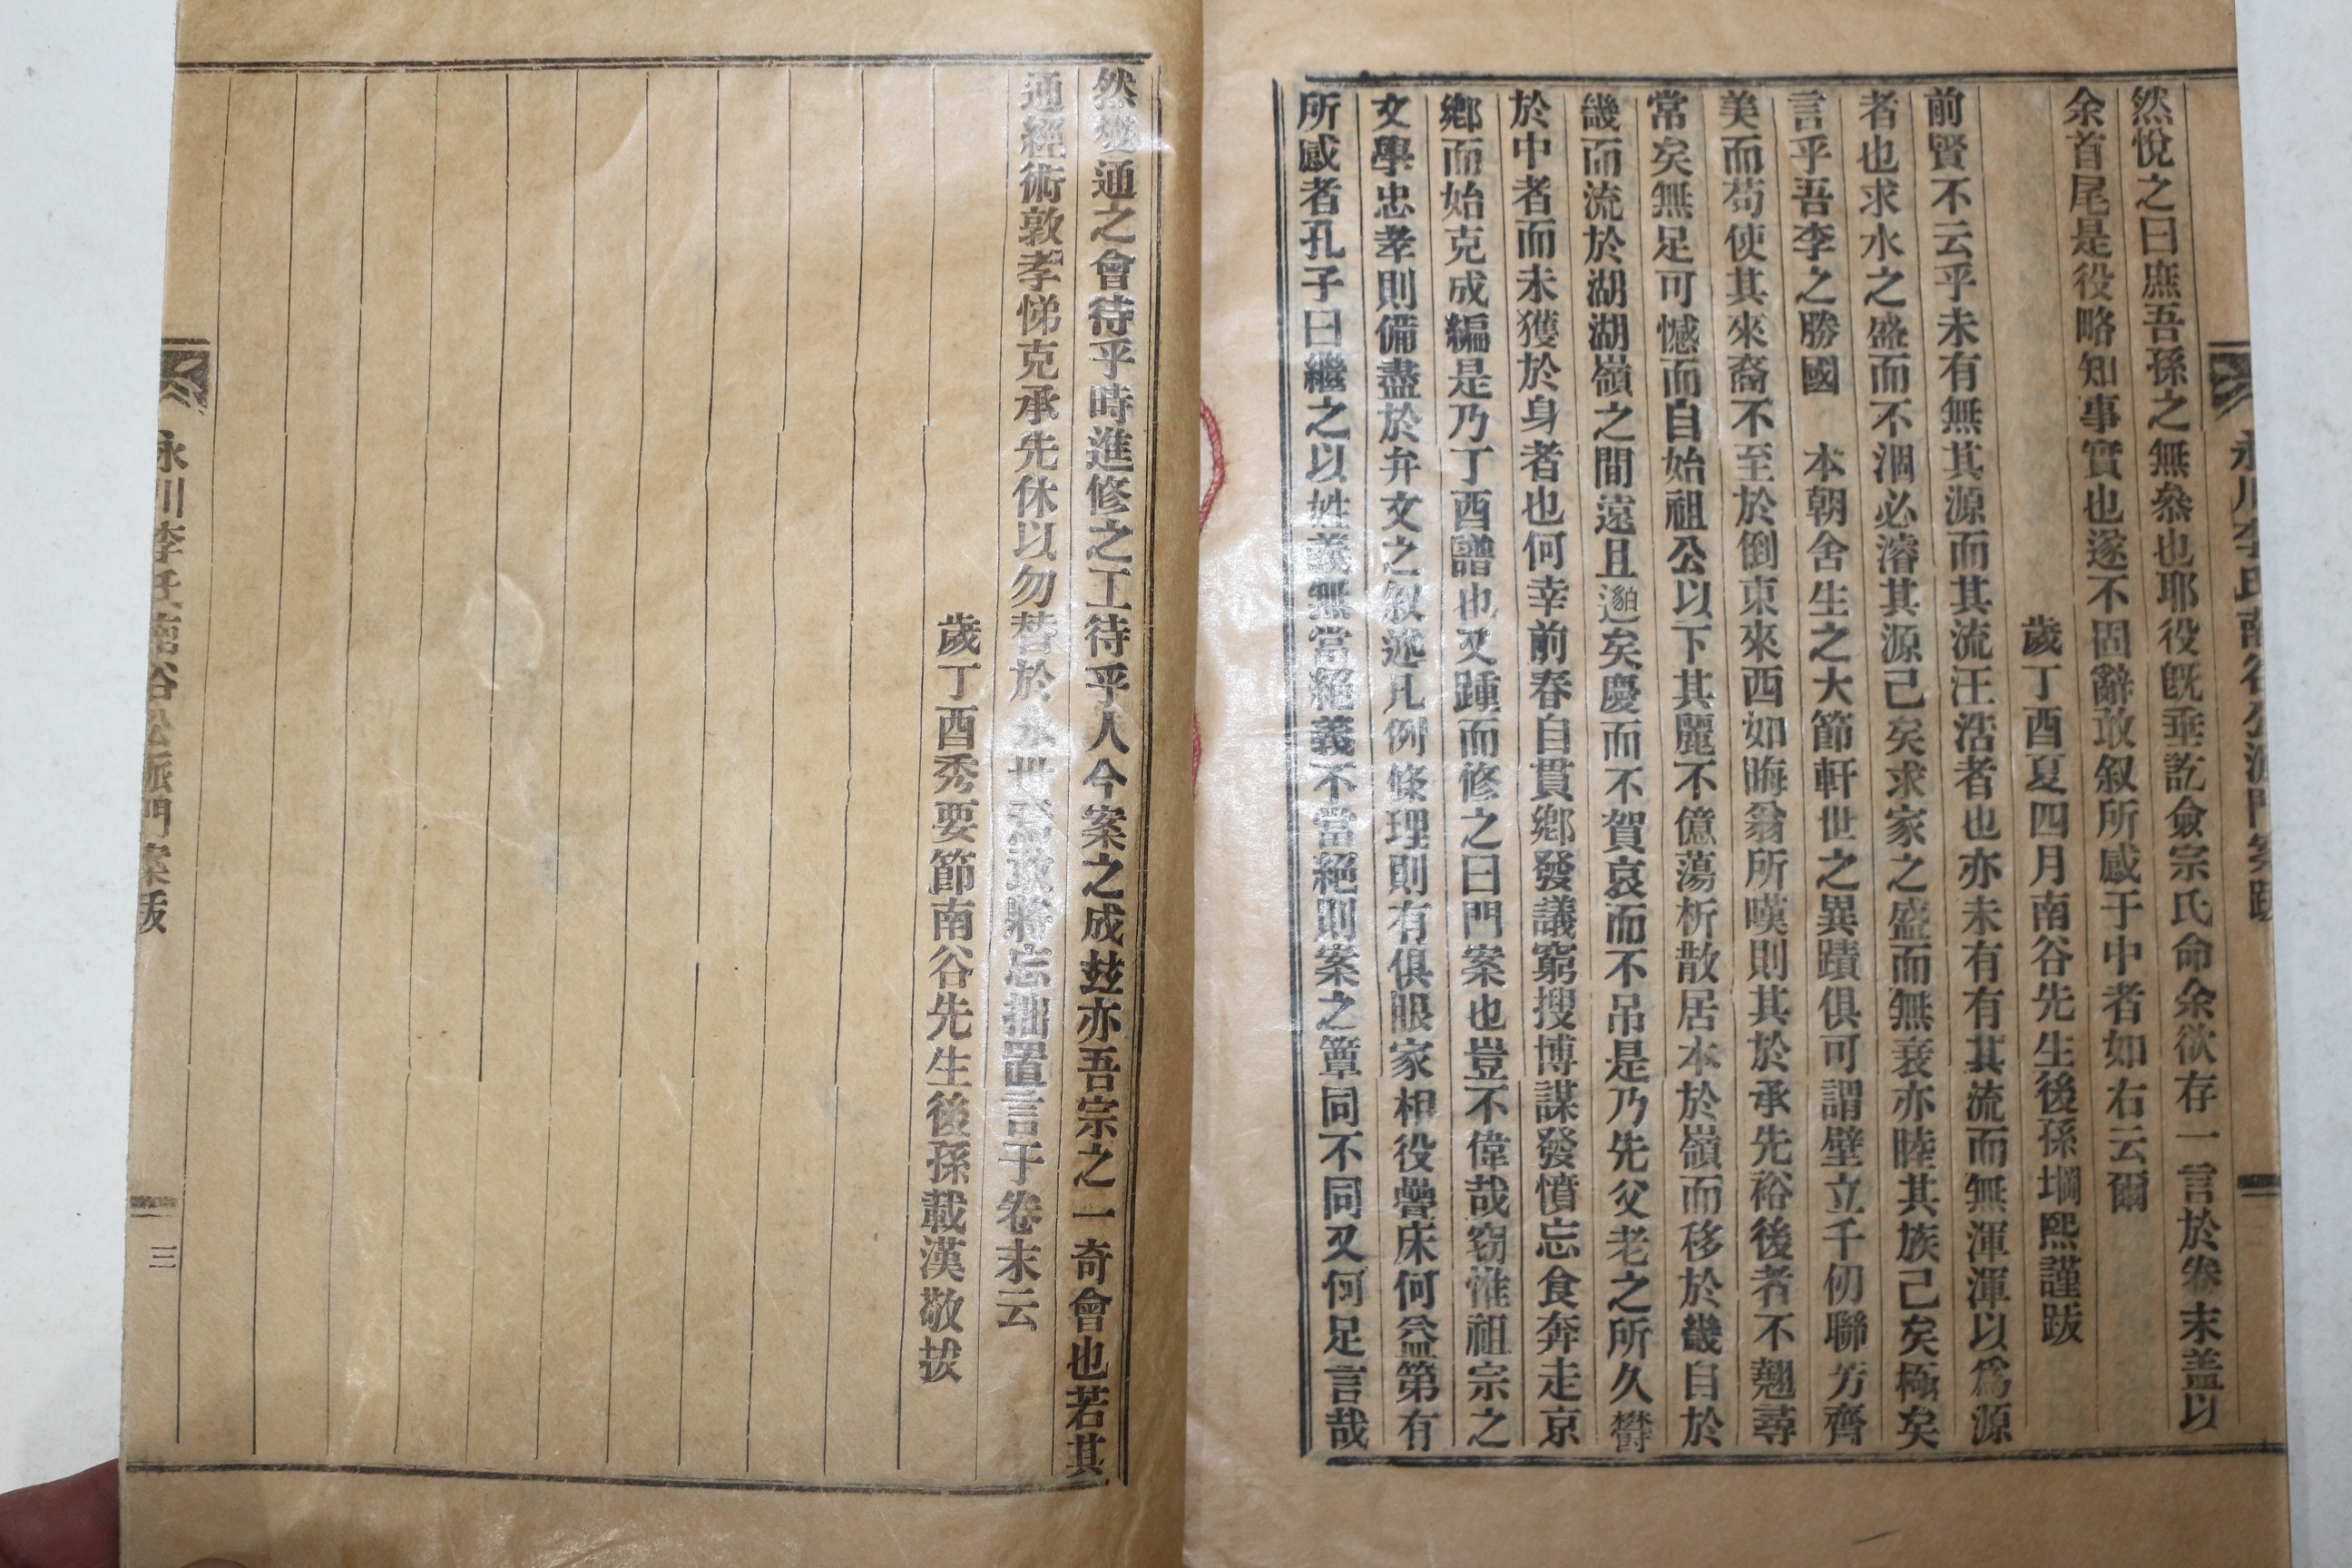 永川李氏南谷公派門案跋
然悅之曰庶吾孫之無忝也耶役旣垂訖僉宗氏命余欲存一言於卷末盖以
余首尾是役略知事實也遂不固辭敢叙所感于中者如右云爾
歲丁酉夏四月南谷先生後孫堈熙謹跋
前賢不云乎未有無其源而其流汪浩者也亦未有有其流而無渾渾以爲源
者也求水之盛而不涸必濬其源己矣求家之盛而無衰亦睦其族己矣極矣
言乎吾李之勝國 本朝舍生之大節軒世之異蹟俱可謂壁立千仞聯芳齊
美而苟使其來裔不至於倒東來西如晦翁所嘆則其於承先裕後者不翹尋
常矣無足可憾而自始祖公以下其麗不億蕩析散居本於嶺而移於畿自於
畿而流於湖湖嶺之間遠且邈矣慶而不賀哀而不吊是乃先父老之所久欎
於中者而未獲於身者也何幸前春自貫鄉發議窮搜博謀發憤忘食奔走京
鄉而始克成編是乃丁酉譜也又踵而修之曰門案也豈不偉哉窃惟祖宗之
文學忠孝則備盡於弁文之叙述凡例條理則有俱眼家相役疊床何益第有
所感者孔子曰繼之以姓義無當絕義不當絕則案之簟同不同又何足言哉
然變通之會待乎時進修之工待乎人今案之成玆亦吾宗之一奇會也若其
通經術敦孝悌克承先休以勿替於永世焉敢將忘拙置言于卷末云
歲丁酉秀要節南谷先生後孫載漢敬拔
永川李氏南谷公派門案跋
三